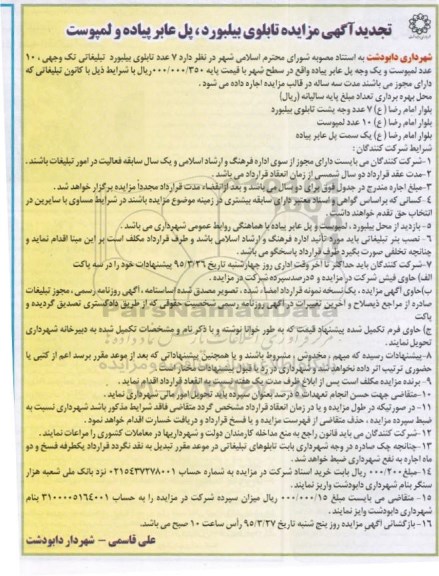 تجدید آگهی مزایده تابلوی بیلبورد، پل عابر پیاده و لمپوست
شهرداری دابودشت به استناد مصوبه شورای محترم اسلامی شهر در نظر دارد ۷ عدد تابلوی بیلبورد تبلیغاتی تک وجهی، ۱۰
عدد لمپوست و یک وجه پل عابر پیاده واقع در سطح شهر با قیمت پایه ۰۰۰/۰۰۰/۳۵۰ ریال با شرایط ذیل با کانون تبلیغاتی که
دارای مجوز می باشند مدت سه ساله در قالب مزایده اجاره داده می شود.
محل بهره برداری تعداد مبلغ پایه سالیانه (ریال)
بلوار امام رضا (ع) ۷ عدد وجه پشت تابلوی بیلبورد
بلوار امام رضا (ع) ۱۰ عدد لمپوست
بلوار امام رضا (ع) یک سمت پل عابر پیاده
شرایط شرکت کنندگان:
۱-شرکت کنندگان می بایست دارای مجوز از سوی اداره فرهنگ و ارشاد اسلامی و یک سال سابقه فعالیت در امور تبلیغات باشند.
۲-مدت عقد قرارداد دو سال شمسی از زمان انعقاد قرارداد می باشد.
۳-مبلغ اجاره مندرج در جدول فوق برای دو سال می باشد و بعد از انقضاء مدت قرارداد مجدداً مزایده برگزار خواهد شد.
۴-کسانی که براساس گواهی و اسناد معتبر دارای سابقه بیشتری در زمینه موضوع مزایده باشند در شرایط مساوی با سایرین در
انتخاب حق تقدم خواهند داشت.
۵-بازدید از محل بیلبورد، لمپوست و پل عابر پیاده با هماهنگی روابط عمومی شهرداری می باشد.
۶- نصب بنر تبلیغاتی باید مورد تأیید اداره فرهنگ و ارشاد اسلامی باشد و طرف قرارداد مکلف است بر این مبنا اقدام نماید و
چنانچه تخلفی صورت بگیرد طرف قرارداد پاسخگو می باشد.
۷-شرکت کنندگان باید حداکثر تا آخر وقت اداری روز چهارشنبه تاریخ ۹۵/۳/۲۶ پیشنهادات خود را در سه پاکت
(الف) حاوی فیش شرکت در مزایده و ۵ درصد سپرده شرکت در مزایده.
ب) حاوی آگهی مزایده، یک نسخه نمونه قرارداد امضاء شده، تصویر مصدق شده اساسنامه، آگهی روزنامه رسمی، مجوز تبلیغات
صادره از مراجع ذیصلاح و آخرین تغییرات در آگهی روزنامه رسمی شخصیت حقوقی که از طریق دادگستری تصدیق گردیده و
پاکت
ج) حاوی فرم تکمیل شده پیشنهاد قیمت که به طور خوانا نوشته و با ذکر نام و مشخصات تکمیل شده به دبیرخانه شهرداری
تحویل نمایند.
۸-پیشنهادات رسیده که مبهم، مخدوش، مشروط باشند و یا همچنین پیشنهاداتی که بعد از موعد مقرر برسد اعم از کتبی یا
حضوری ترتیب اثر داده نخواهد شد و شهرداری در رد یا قبول پیشنهادات مختار است.
۹- برنده مزایده مکلف است پس از ابلاغ ظرف مدت یک هفته نسبت به انعقاد قرارداد اقدام نماید.
۱۰-متقاضی جهت حسن انجام تعهدات ۵ درصد بعنوان سپرده باید تحویل امور مالی شهرداری نماید.
۱۱- در صورتیکه در طول مزایده و یا در زمان انعقاد قرارداد مشخص گردد متقاضی فاقد شرایط مذکور باشد شهرداری نسبت به
ضبط سپرده مزایده، حذف متقاضی از فهرست مزایده و یا فسخ قرارداد و دریافت خسارت اقدام خواهد نمود.
۱۲-شرکت کنندگان می باید قانون راجع به منع مداخله کارمندان دولت و شهرداریها در معاملات کشوری را مراعات نمایند.
۱۳-چنانچه چک صادره در وجه شهرداری بابت تابلوهای تبلیغاتی در موعد مقرر تبدیل به نقد نگردد قرارداد یکطرفه فسخ و دو
ماه اجاره به نفع شهرداری ضبط خواهد شد.
۱۴-مبلغ ۰۰۰/۲۰۰ ریال بابت خرید اسناد شرکت در مزایده به شماره حساب ۰۲۱۵۴۳۷۲۷۸۰۰۱ نزد بانک ملی شعبه هزار
سنگر بنام شهرداری دابودشت واریز نمایند.
۱۵- متقاضی می بایست مبلغ ۰۰۰/۰۰۰/۱۵ ریال میزان سپرده شرکت در مزایده را به حساب ۳۱۰۰۰۰۵۱۶۴۰۰۱ بنام
شهرداری دابودشت واریز نمایند.
۱۶-بازگشائی آگهی مزایده روز پنج شنبه تاریخ ۹۵/۳/۲۷ رأس ساعت ۱۰ صبح می باشد.
علی قاسمی - شهردار دابودشت
ParsNamadData